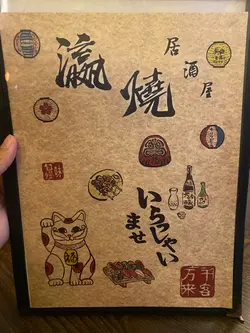 瀛燒
居酒屋
いらっしゃい
ませ
千客
万来